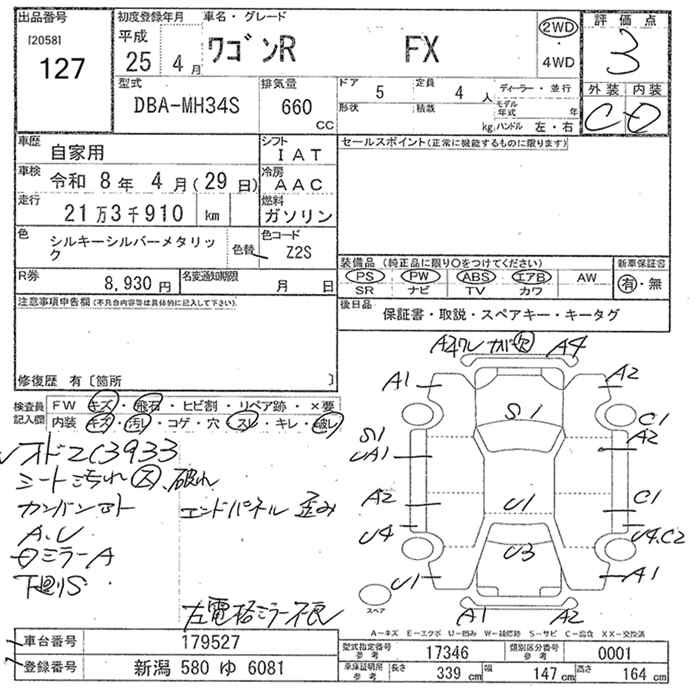 出品番号
[2058]
127
初度登録年月
平成
25 4月
車名・グレード
ワゴンR FX
2WD
・
4WD
評価点
3
外装 内装
C D
型式
DBA-MH34S
排気量
660
CC
ドア 5
定員 4人
形状
積載 kg
ディーラー・並行
モデル年式 年
ハンドル 左・右
車歴 自家用
シフト IAT
車検 令和 8年 4月(29日)
冷房 AAC
走行 21万3千910 km
燃料 ガソリン
色 シルキーシルバーメタリック
色替
色コード Z2S
R券 8,930円
名変通知期限 月 日
セールスポイント(正常に機能するものに限ります)
装備品 (純正品に限り○をつけてください)
PS PW ABS エアB AW
SR ナビ TV カワ
新車保証書
有・無
後日品
保証書・取説・スペアキー・キータグ
注意事項申告欄(不具合内容等は具体的に記入して下さい)
修復歴 有〔箇所 〕
検査員記入欄
FW キズ・飛石・ヒビ割・リペア跡・×要
内装 キズ・汚れ・コゲ・穴・スレ・キレ・破レ
シート汚れ 大 破れ
エンドパネル 歪み
A.U
ミラーA
下廻りS
左電格ミラー不良
A4 A4
A1 A2
S1
C1
S1 A2
UA1
A2 U1 C1
U4 U4.C2
U3
U1 A1
A1 A2
スペア
A-キズ E-エクボ U-凹み W-補修跡 S-サビ C-腐食 XX-交換済
車台番号 179527
登録番号 新潟 580 ゆ 6081
型式指定番号 参考 17346
類別区分番号 参考 0001
車庫証明用 参考 長さ 339 cm 幅 147 cm 高さ 164 cm